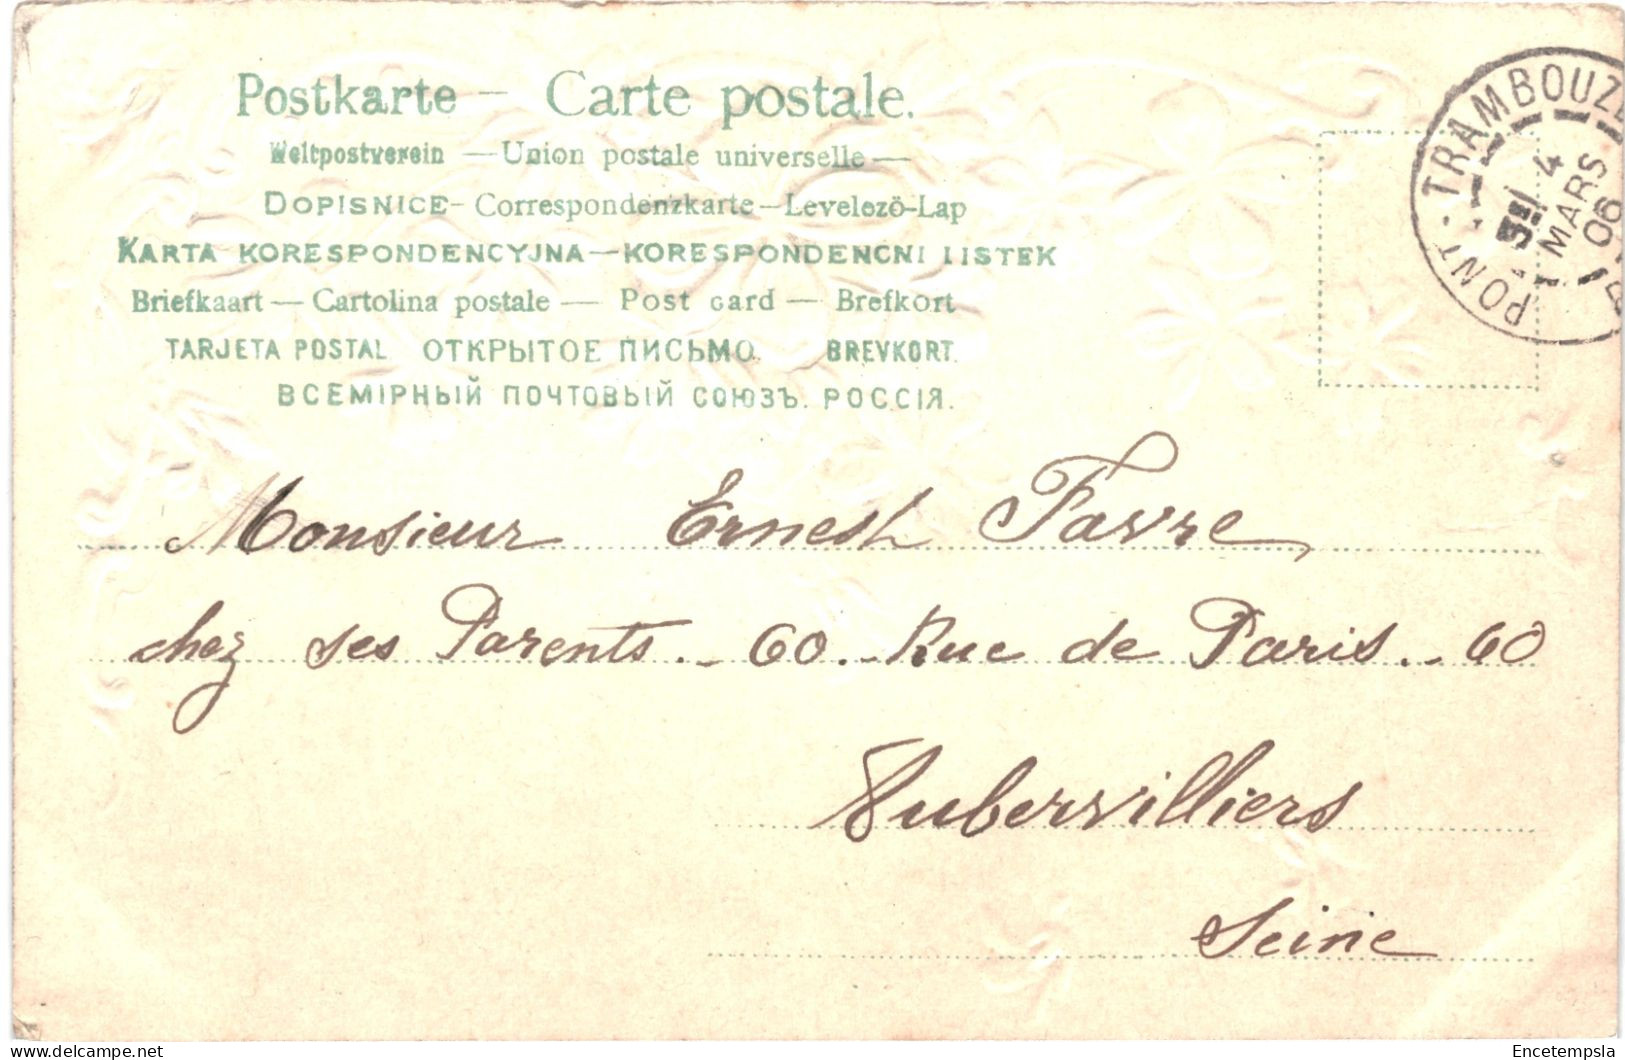 Postkarte – Carte postale.
Weltpostverein — Union postale universelle —
DOPISNICE – Correspondenzkarte – Levelezö-Lap
KARTA KORESPONDENCYJNA — KORESPONDENCNI LISTEK
Briefkaart — Cartolina postale — Post card — Brefkort
TARJETA POSTAL ОТКРЫТОЕ ПИСЬМО. BREVKORT.
ВСЕМІРНЫЙ ПОЧТОВЫЙ СОЮЗЪ. РОССІЯ.
PONT - TRAMBOUZE
4
MARS
06
Monsieur Ernest Favre
chez ses Parents. - 60. - Rue de Paris. - 60
Aubervilliers
Seine
Encetempsla